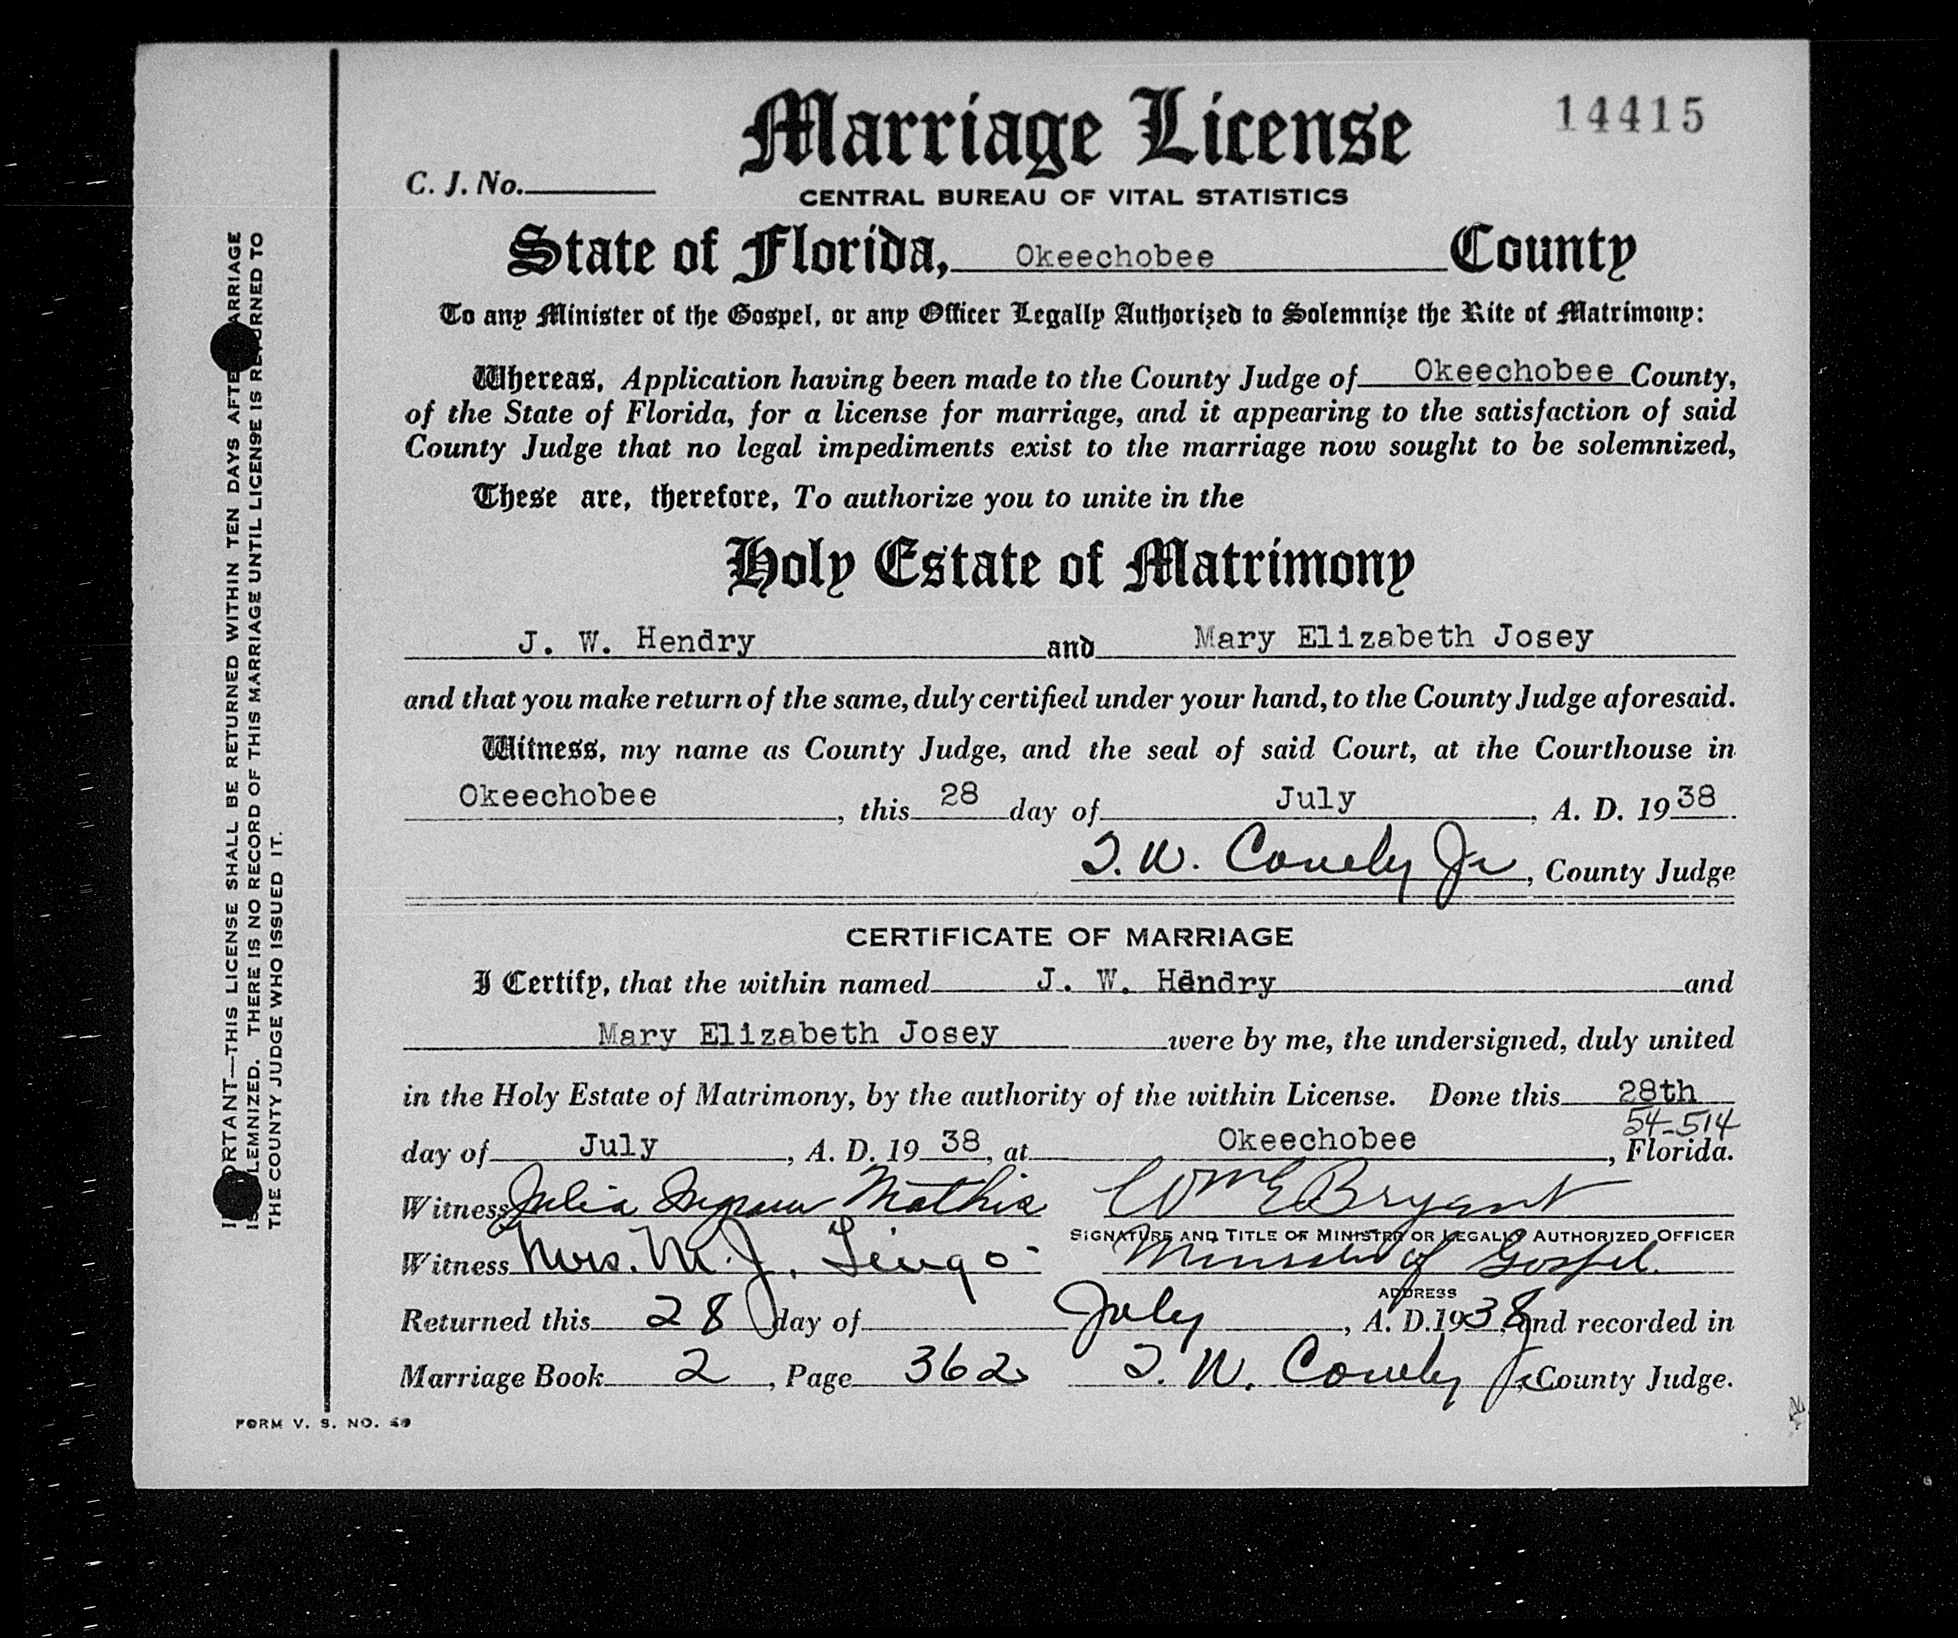 Marriage License
14415
C. J. No.
CENTRAL BUREAU OF VITAL STATISTICS
State of Florida, Okeechobee County
To any Minister of the Gospel, or any Officer Legally Authorized to Solemnize the Rite of Matrimony:
Whereas, Application having been made to the County Judge of Okeechobee County,
of the State of Florida, for a license for marriage, and it appearing to the satisfaction of said
County Judge that no legal impediments exist to the marriage now sought to be solemnized,
These are, therefore, To authorize you to unite in the
Holy Estate of Matrimony
J. W. Hendry and Mary Elizabeth Josey
and that you make return of the same, duly certified under your hand, to the County Judge aforesaid.
Witness, my name as County Judge, and the seal of said Court, at the Courthouse in
Okeechobee, this 28 day of July, A. D. 1938.
T. W. Conely Jr, County Judge
CERTIFICATE OF MARRIAGE
I Certify, that the within named J. W. Hendry and
Mary Elizabeth Josey were by me, the undersigned, duly united
in the Holy Estate of Matrimony, by the authority of the within License. Done this 28th
54-514
day of July, A. D. 1938, at Okeechobee, Florida.
Witness Julia Mathis Wm E Bryant
SIGNATURE AND TITLE OF MINISTER OR LEGALLY AUTHORIZED OFFICER
Witness Mrs. M. J. Lingo Minister of Gospel
ADDRESS
Returned this 28 day of July, A. D. 1938, and recorded in
Marriage Book 2, Page 362 T. W. Conely Jr, County Judge.
FORM V. S. NO.
IMPORTANT—THIS LICENSE SHALL BE RETURNED WITHIN TEN DAYS AFTER MARRIAGE
IS SOLEMNIZED. THERE IS NO RECORD OF THIS MARRIAGE UNTIL LICENSE IS RETURNED TO
THE COUNTY JUDGE WHO ISSUED IT.